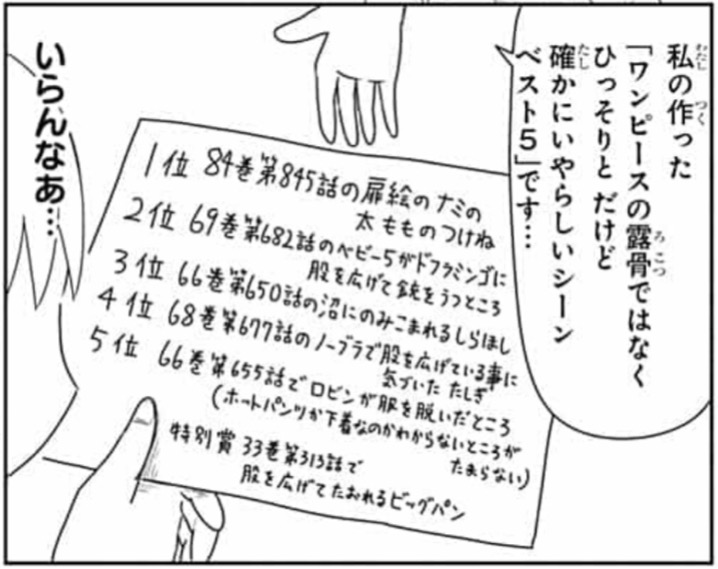 私の作った
「ワンピースの露骨ではなく
ひっそりと だけど
確かにいやらしいシーン
ベスト5」です…
いらんなあ…
1位 84巻第845話の扉絵のナミの
太もものつけね
2位 69巻第682話のベビー5がドフラミンゴに
股を広げて銃をうつところ
3位 66巻第650話の沼にのみこまれるしらほし
4位 68巻第677話のノーブラで股を広げている事に
気づいた たしぎ
5位 66巻第655話でロビンが服を脱いだところ
(ホットパンツか下着なのかわからないところが
たまらない)
特別賞 33巻第313話で
股を広げてたおれるビッグパン